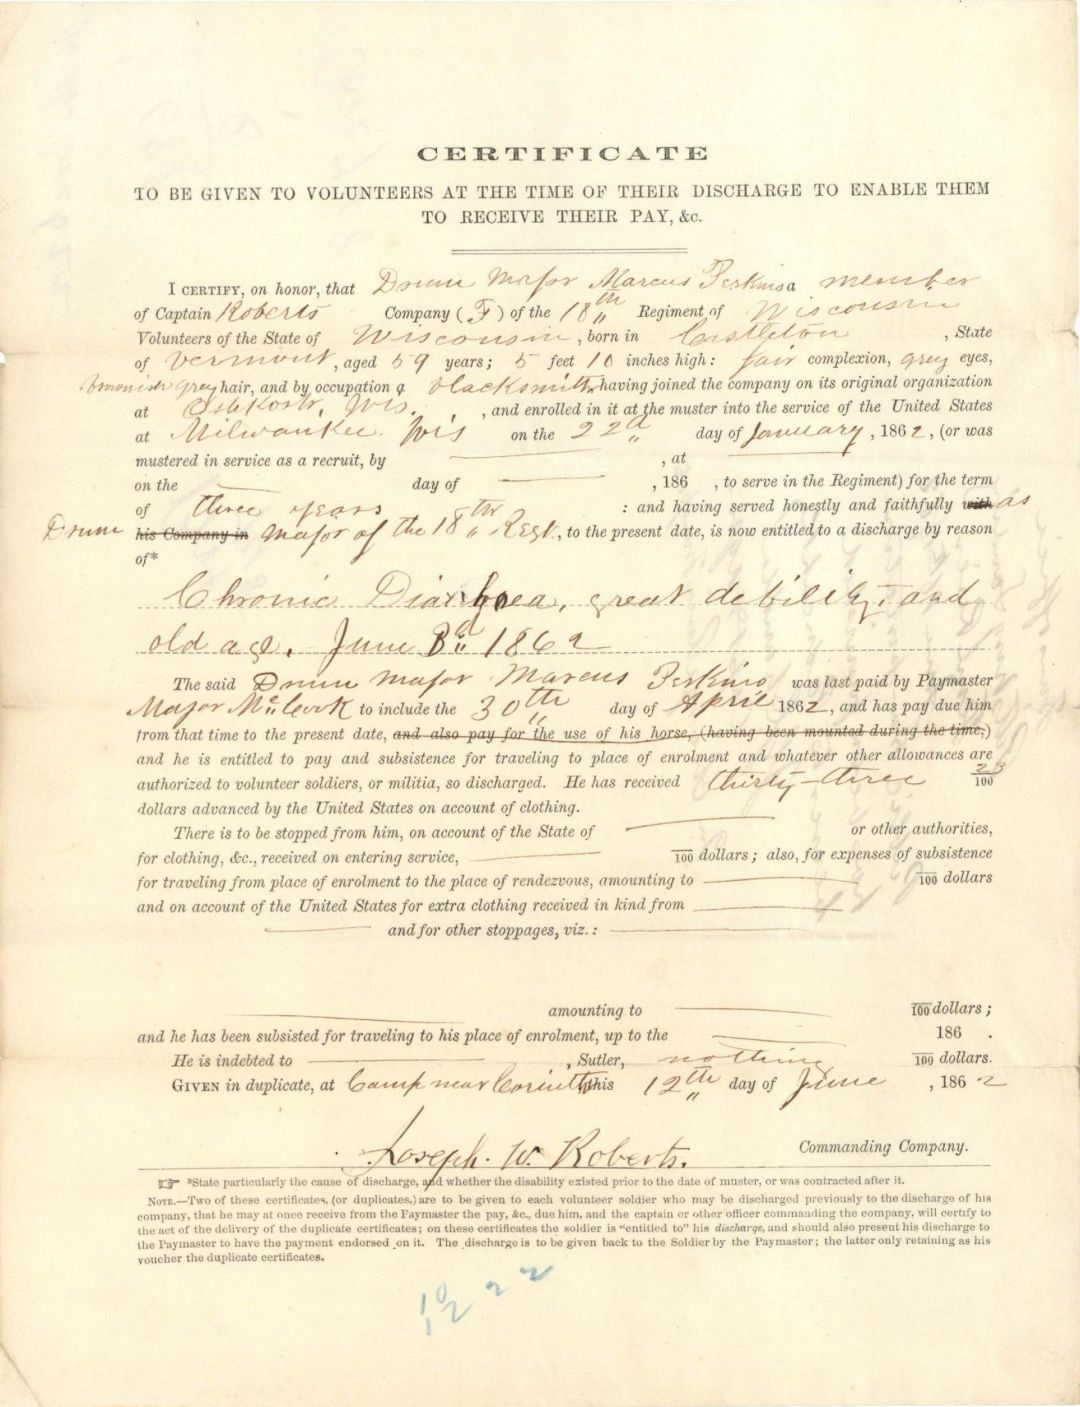 CERTIFICATE
TO BE GIVEN TO VOLUNTEERS AT THE TIME OF THEIR DISCHARGE TO ENABLE THEM
TO RECEIVE THEIR PAY, &c.
I CERTIFY, on honor, that Drum Major Marcus Perkins a member
of Captain Roberts Company (F) of the 18th Regiment of Wisconsin
Volunteers of the State of Wisconsin, born in Castleton, State
of Vermont, aged 59 years; 5 feet 10 inches high: fair complexion, grey eyes,
grey hair, and by occupation a blacksmith having joined the company on its original organization
at Oshkosh, Wis., and enrolled in it at the muster into the service of the United States
at Milwaukee Wis on the 22d day of January, 1862, (or was
mustered in service as a recruit, by , at
on the day of , 186 , to serve in the Regiment) for the term
of three years : and having served honestly and faithfully with as
Drum his Company in Major of the 18th Regt, to the present date, is now entitled to a discharge by reason
of*
Chronic Diarrhoea, great debility, and
old age. June 3d 1862
The said Drum Major Marcus Perkins was last paid by Paymaster
Major McCook to include the 30th day of April 1862, and has pay due him
from that time to the present date, and also pay for the use of his horse, (having been mounted during the time,)
and he is entitled to pay and subsistence for traveling to place of enrolment and whatever other allowances are
authorized to volunteer soldiers, or militia, so discharged. He has received thirty-three 23/100
dollars advanced by the United States on account of clothing.
There is to be stopped from him, on account of the State of or other authorities,
for clothing, &c., received on entering service, /100 dollars; also, for expenses of subsistence
for traveling from place of enrolment to the place of rendezvous, amounting to /100 dollars
and on account of the United States for extra clothing received in kind from
and for other stoppages, viz.:
amounting to /100 dollars;
and he has been subsisted for traveling to his place of enrolment, up to the 186 .
He is indebted to , Sutler, nothing /100 dollars.
GIVEN in duplicate, at Camp near Corinth this 12th day of June, 1862
Joseph. W. Roberts. Commanding Company.
☞ *State particularly the cause of discharge, and whether the disability existed prior to the date of muster, or was contracted after it.
NOTE.—Two of these certificates, (or duplicates,) are to be given to each volunteer soldier who may be discharged previously to the discharge of his
company, that he may at once receive from the Paymaster the pay, &c., due him, and the captain or other officer commanding the company, will certify to
the act of the delivery of the duplicate certificates; on these certificates the soldier is "entitled to" his discharge, and should also present his discharge to
the Paymaster to have the payment endorsed on it. The discharge is to be given back to the Soldier by the Paymaster; the latter only retaining as his
voucher the duplicate certificates.